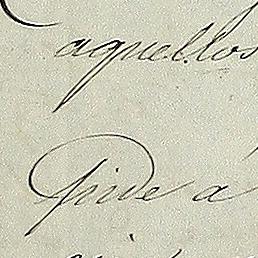 aquellos
Pide á